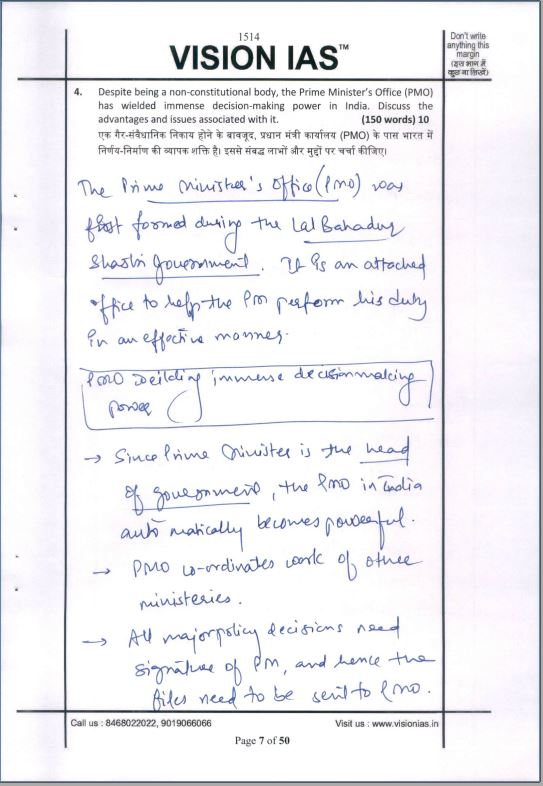 1514
VISION IAS™
Don't write
anything this
margin
(इस भाग में
कुछ ना लिखें)
4. Despite being a non-constitutional body, the Prime Minister's Office (PMO)
has wielded immense decision-making power in India. Discuss the
advantages and issues associated with it. (150 words) 10
एक गैर-संवैधानिक निकाय होने के बावजूद, प्रधान मंत्री कार्यालय (PMO) के पास भारत में
निर्णय-निर्माण की व्यापक शक्ति है। इससे संबद्ध लाभों और मुद्दों पर चर्चा कीजिए।
The Prime Minister's Office (PMO) was
first formed during the Lal Bahadur
Shastri government. It is an attached
office to help the PM perform his duty
in an effective manner.
PMO weilding immense decision making
power
→ Since Prime Minister is the head
of government, the PMO in India
automatically becomes powerful.
→ PMO co-ordinates work of other
ministeries.
→ All major policy decisions need
signature of PM, and hence the
files need to be sent to PMO.
Call us : 8468022022, 9019066066 Visit us : www.visionias.in
Page 7 of 50